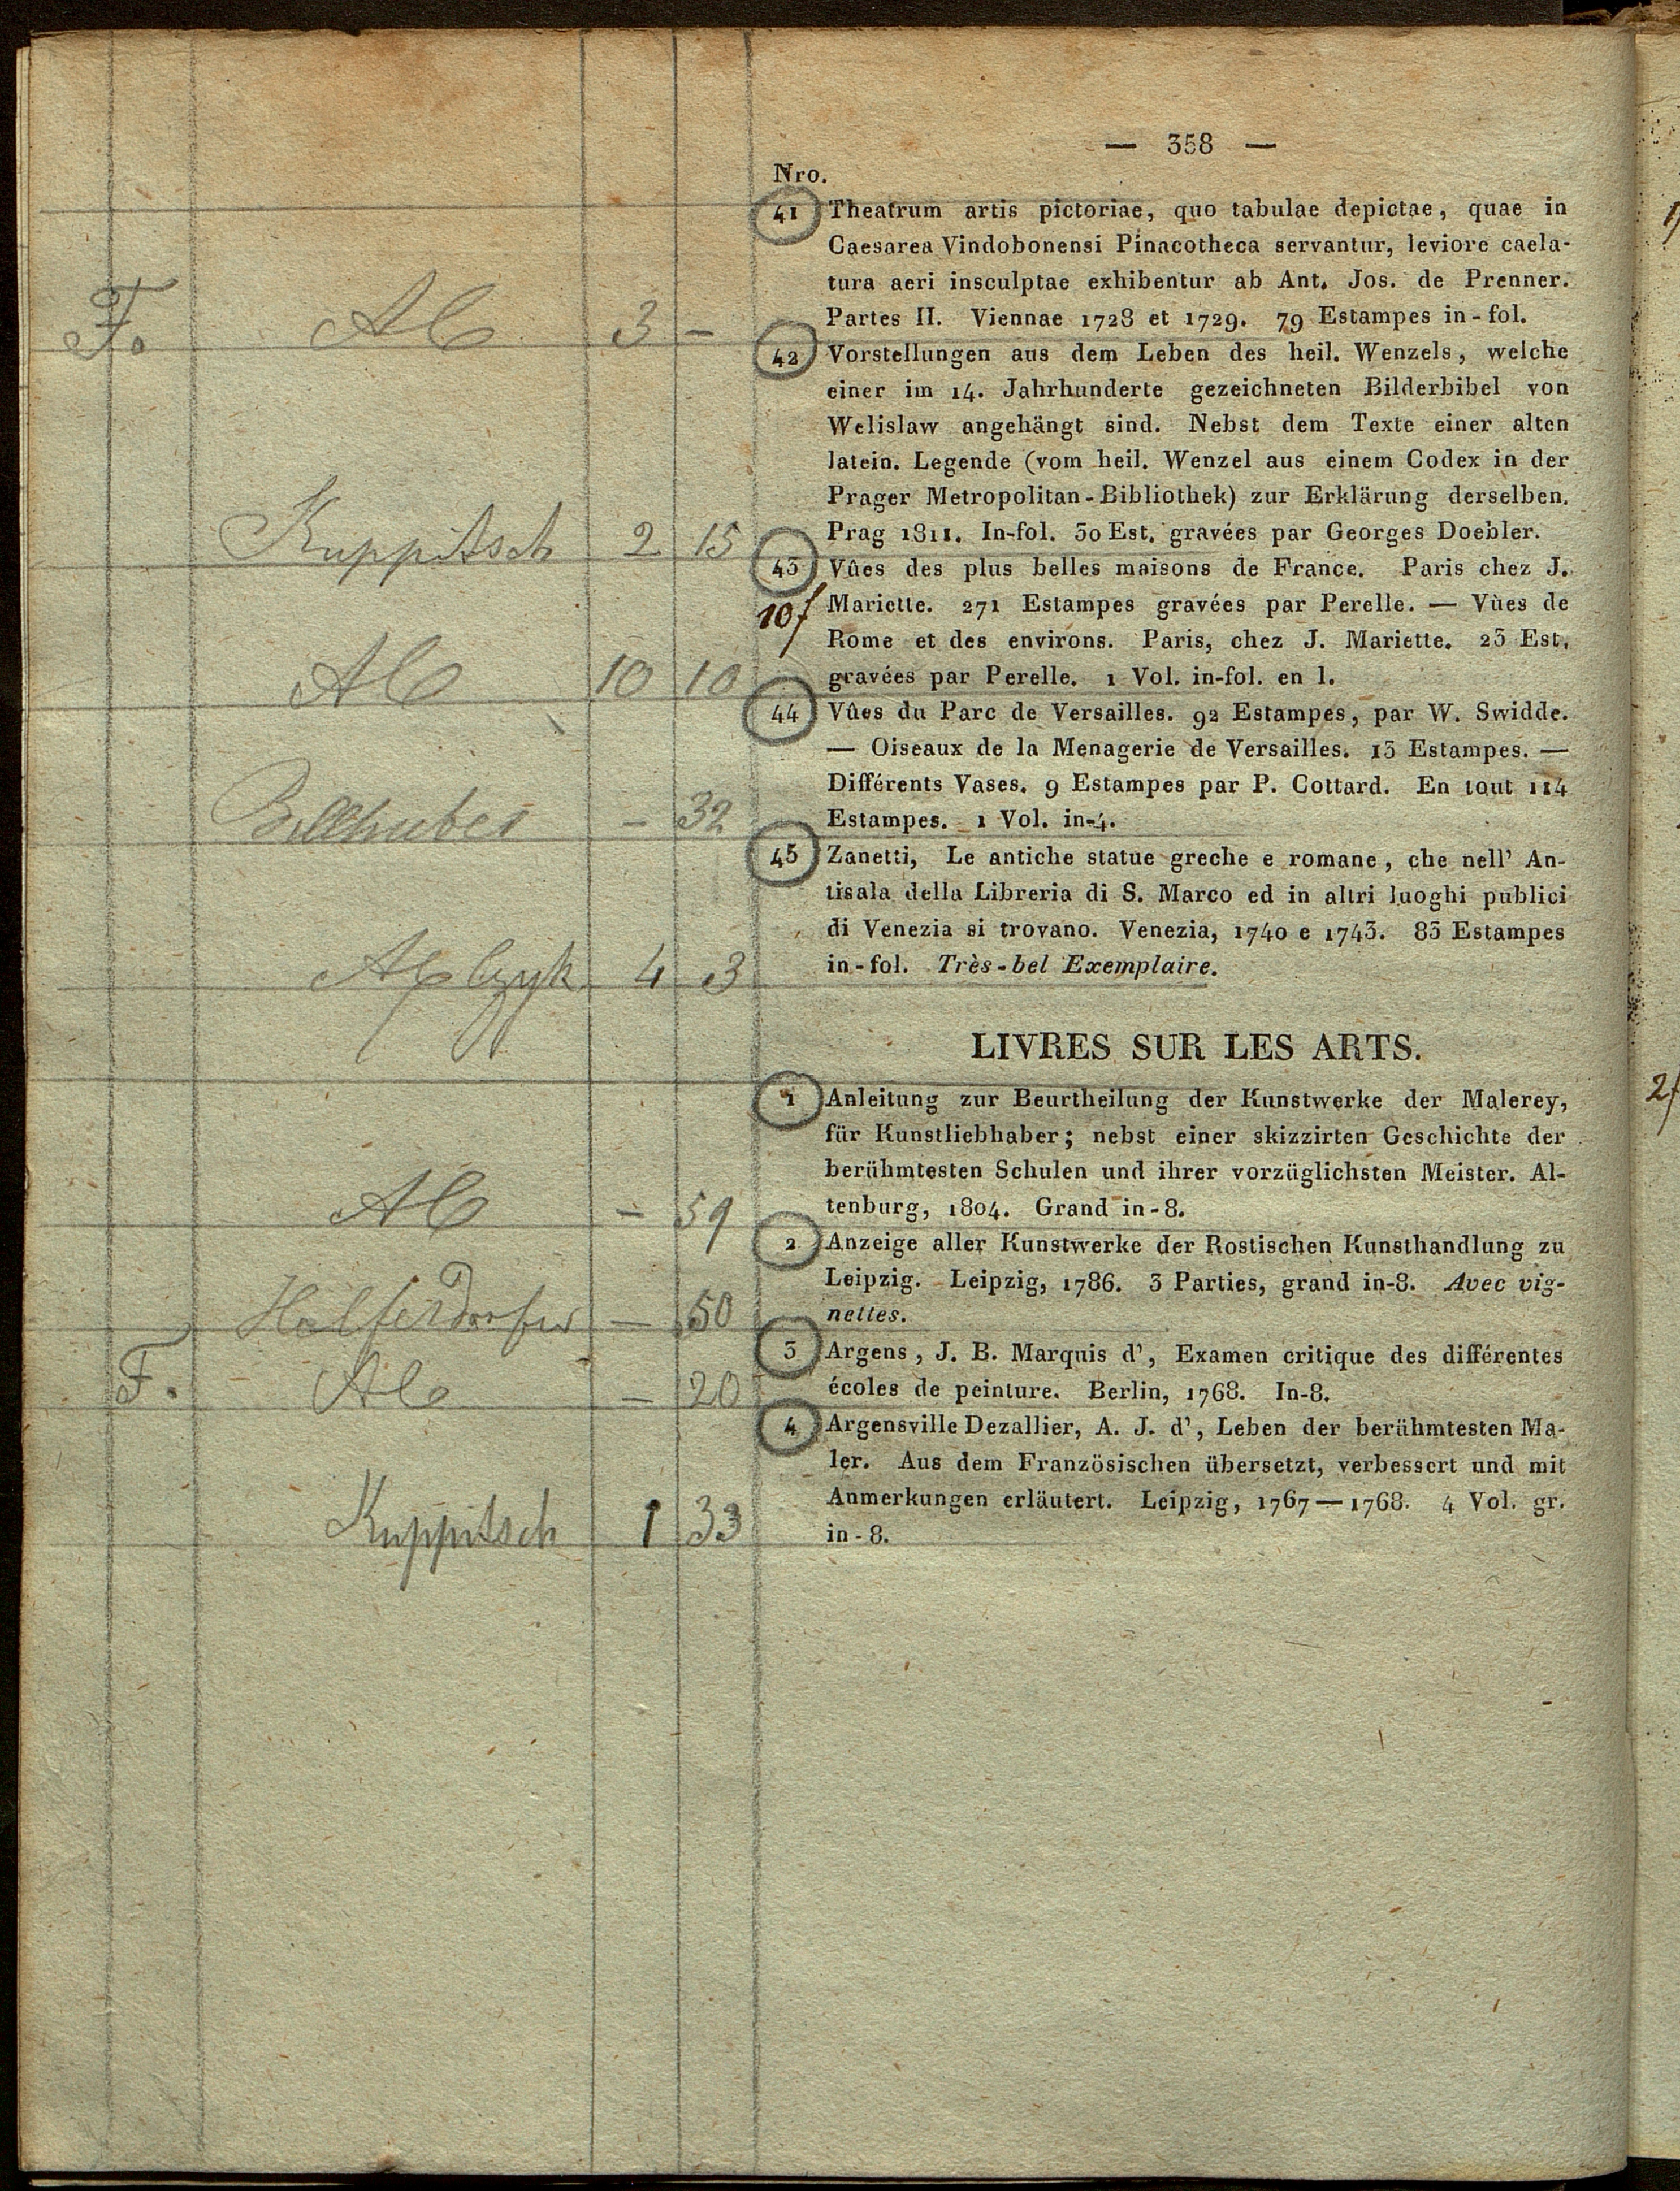 — 358 —
Nro.
41 Theatrum artis pictoriae, quo tabulae depictae, quae in
Caesarea Vindobonensi Pinacotheca servantur, leviore caela-
tura aeri insculptae exhibentur ab Ant. Jos. de Prenner.
Partes II. Viennae 1728 et 1729. 79 Estampes in-fol.
F. 3 —
42 Vorstellungen aus dem Leben des heil. Wenzels, welche
einer im 14. Jahrhunderte gezeichneten Bilderbibel von
Welislaw angehängt sind. Nebst dem Texte einer alten
latein. Legende (vom heil. Wenzel aus einem Codex in der
Prager Metropolitan-Bibliothek) zur Erklärung derselben.
Prag 1811. In-fol. 30 Est. gravées par Georges Doebler.
Kuppitsch 2 15
43 Vûes des plus belles maisons de France. Paris chez J.
10f
Mariette. 271 Estampes gravées par Perelle. — Vûes de
Rome et des environs. Paris, chez J. Mariette. 23 Est.
gravées par Perelle. 1 Vol. in-fol. en l.
10 10
44 Vûes du Parc de Versailles. 92 Estampes, par W. Swidde.
— Oiseaux de la Menagerie de Versailles. 13 Estampes. —
Différents Vases. 9 Estampes par P. Cottard. En tout 114
Estampes. 1 Vol. in-4.
— 32
45 Zanetti, Le antiche statue greche e romane, che nell' An-
tisala della Libreria di S. Marco ed in altri luoghi publici
di Venezia si trovano. Venezia, 1740 e 1743. 83 Estampes
in-fol. Très-bel Exemplaire.
4 3
LIVRES SUR LES ARTS.
1 Anleitung zur Beurtheilung der Kunstwerke der Malerey,
für Kunstliebhaber; nebst einer skizzirten Geschichte der
berühmtesten Schulen und ihrer vorzüglichsten Meister. Al-
tenburg, 1804. Grand in-8.
— 59
2 Anzeige aller Kunstwerke der Rostischen Kunsthandlung zu
Leipzig. Leipzig, 1786. 3 Parties, grand in-8. Avec vig-
nettes.
— 50
3 Argens, J. B. Marquis d', Examen critique des différentes
écoles de peinture. Berlin, 1768. In-8.
F. — 20
4 Argensville Dezallier, A. J. d', Leben der berühmtesten Ma-
ler. Aus dem Französischen übersetzt, verbessert und mit
Anmerkungen erläutert. Leipzig, 1767—1768. 4 Vol. gr.
in-8.
Kuppitsch 1 33
2f